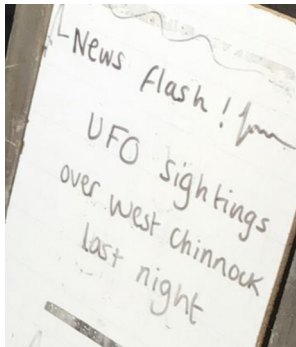 News flash!
UFO sightings
over West Chinnock
last night